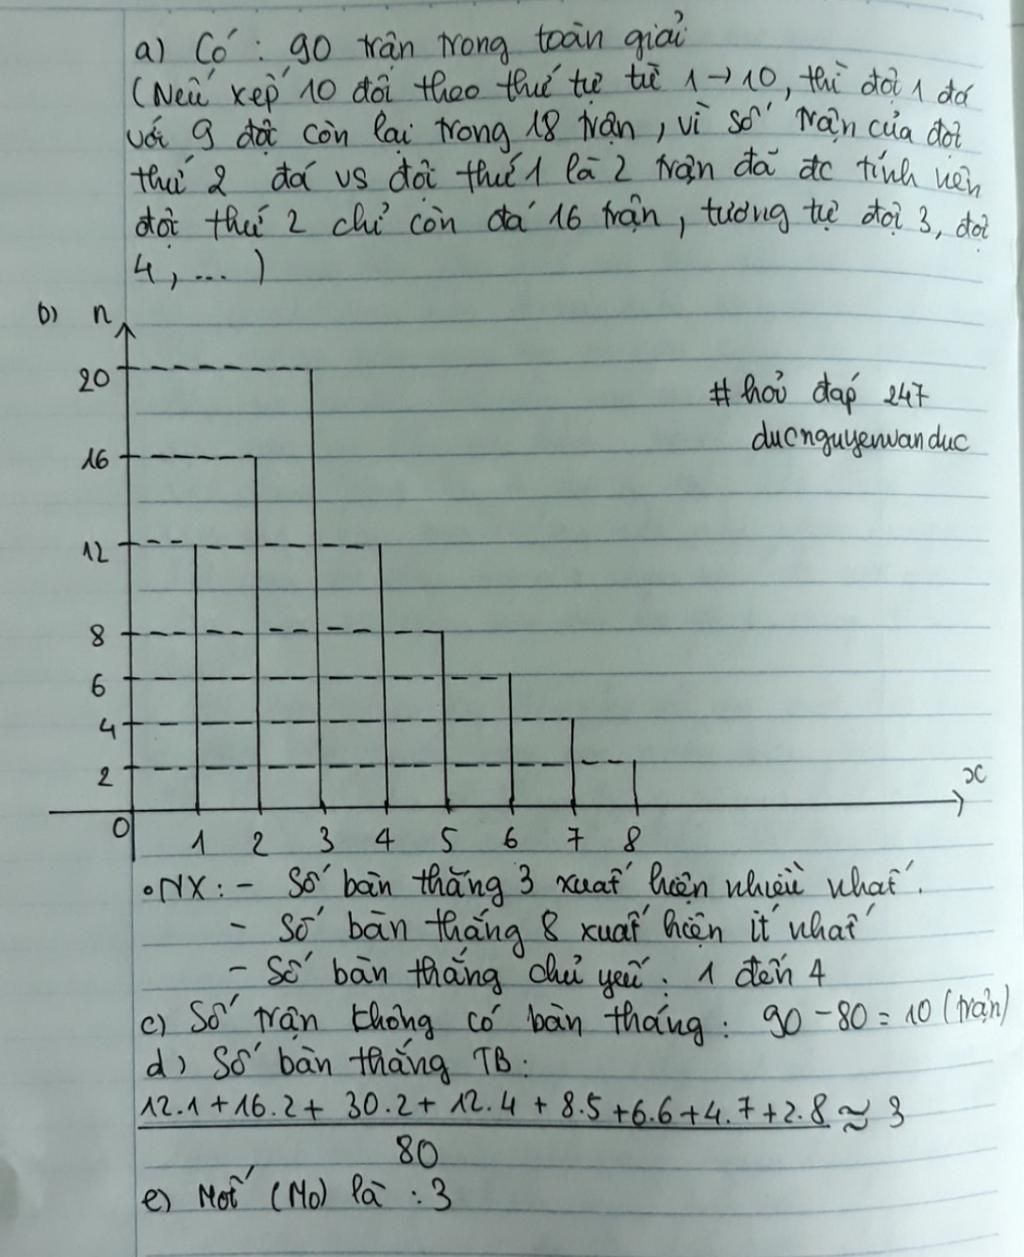 a) Có : 90 trận trong toàn giải
(Nếu xếp 10 đội theo thứ tự từ 1 → 10, thì đội 1 đá
với 9 đội còn lại trong 18 trận, vì số trận của đội
thứ 2 đá vs đội thứ 1 là 2 trận đã đc tính nên
đội thứ 2 chỉ còn đá 16 trận, tương tự đội 3, đội
4, ... )
b) n
20
16
12
8
6
4
2
0 1 2 3 4 5 6 7 8
x
# hỏi đáp 247
ducnguyenvanduc
• NX: - Số bàn thắng 3 xuất hiện nhiều nhất.
- Số bàn thắng 8 xuất hiện ít nhất
- Số bàn thắng chủ yếu : 1 đến 4
c) Số trận không có bàn thắng : 90 - 80 = 10 (trận)
d) Số bàn thắng TB :
12.1 + 16.2 + 30.2 + 12.4 + 8.5 + 6.6 + 4.7 + 2.8 ≈ 3
80
e) Mốt (Mo) là : 3